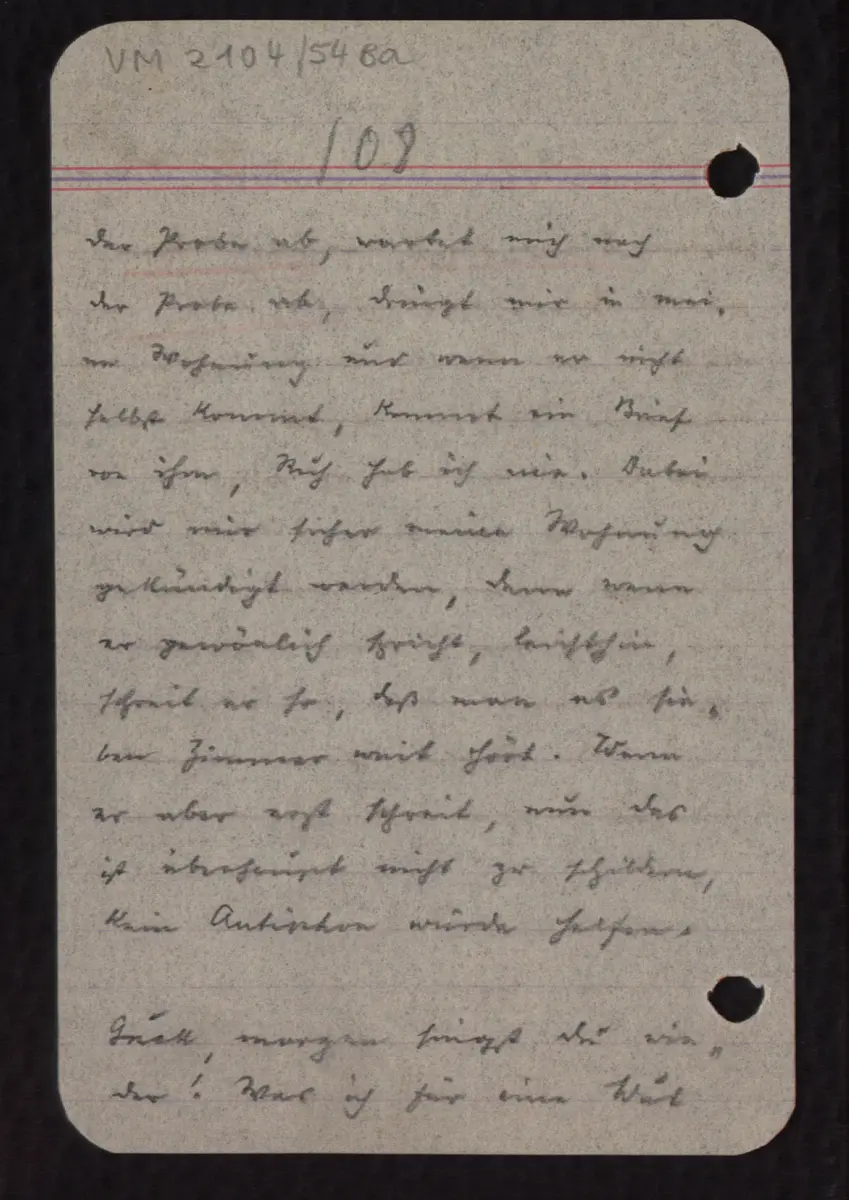 VM 2104/54 Ba
108
der Probe ab, wartet mich nach
der Probe ab, dringt mir in mei„
ne Wohnung und wenn er nicht
selbst kommt, kommt ein Brief
von ihm, Ruh hab ich nie. Dabei
wird mir sicher meine Wohnung
gekündigt werden, denn wenn
er gewönlich spricht, leichthin,
schreit er so, daß man es sie„
ben Zimmer weit hört. Wenn
er aber erst schreit, nun das
ist überhaupt nicht zu schildern,
kein Antiphon würde helfen.
morgen singst du wie„
der! Was ich für eine Wut